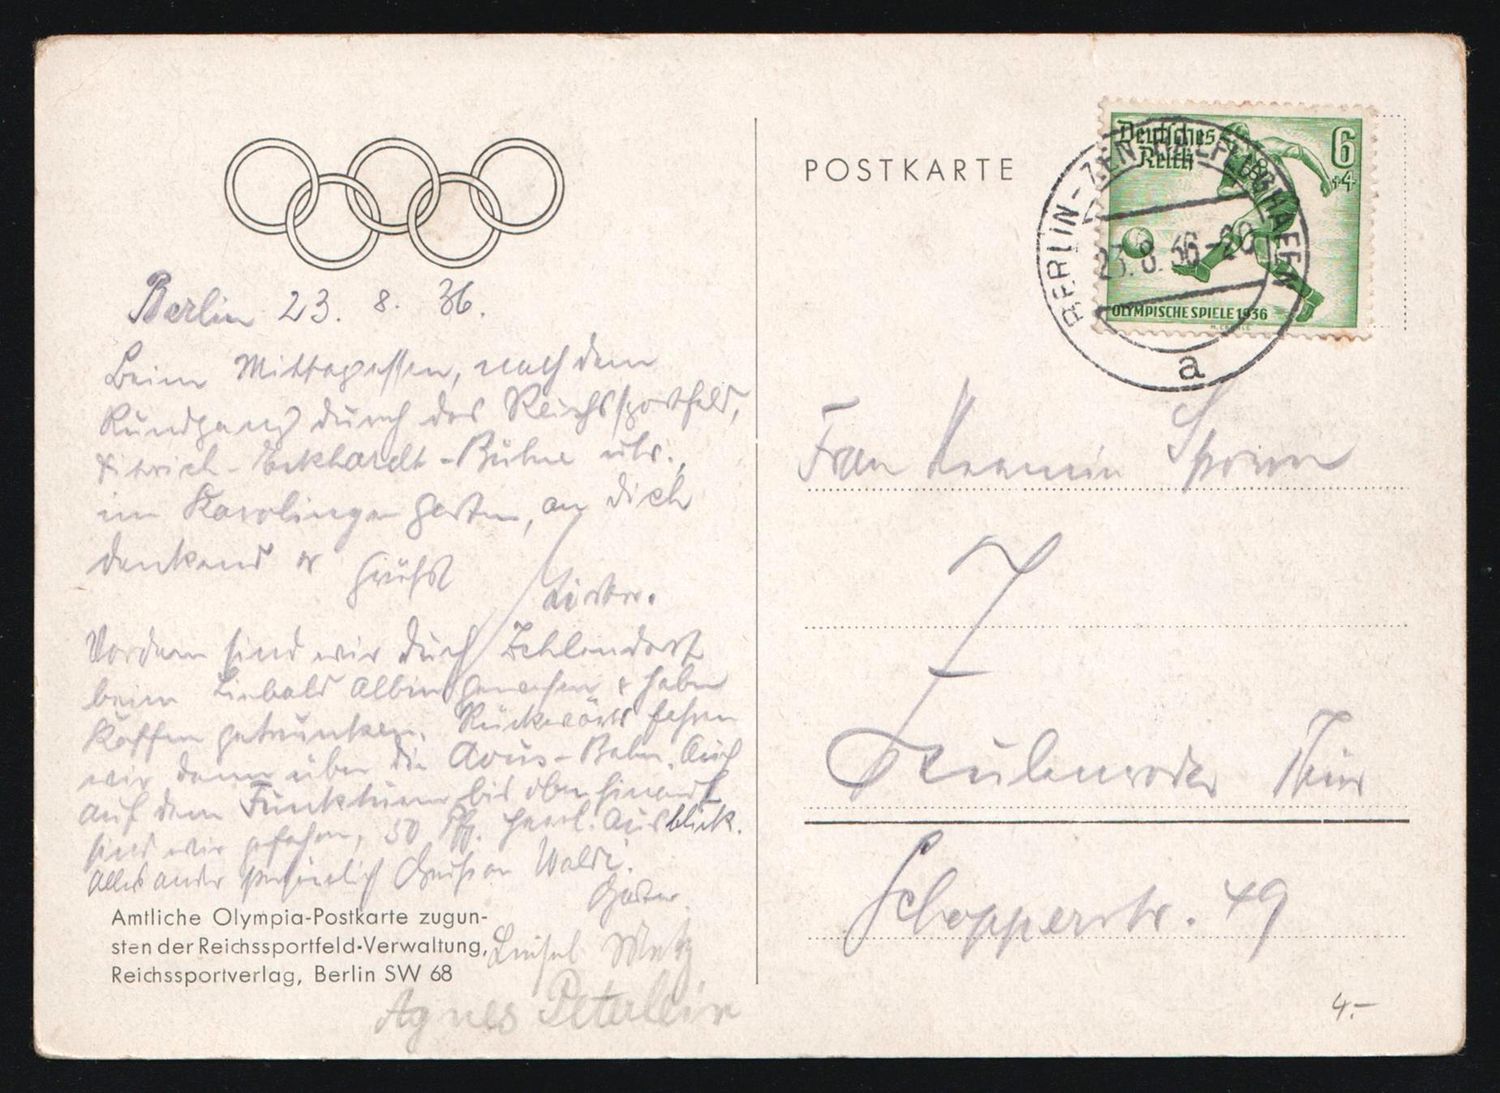 Berlin 23. 8. 36.
Beim Mittagessen, nach dem
Rundgang durch das Reichssportfeld,
Ditrich-Eckhardt-Bühne usw.,
im Karolinger Garten, an Dich
denkend & grüßt
Vordem sind wir durch Zehlendorf
beim Albin gewesen & haben
Kaffee getrunken. Rückwärts fahren
wir dann über die Avus-Bahn. Auch
auf dem Funkturm bis oben hinauf
sind wir gefahren, 50 Pfg. herrl. Ausblick.
Alles andere persönlich
Amtliche Olympia-Postkarte zugun-
sten der Reichssportfeld-Verwaltung,
Reichssportverlag, Berlin SW 68
Liesel Metz
Agnes Peterlein
POSTKARTE
Deutsches
Reich
6
+4
OLYMPISCHE SPIELE 1936
BERLIN-ZENTRALFLUGHAFEN
23.8.36-20
a
Frau
Zeulenroda Thür
Schopperstr. 49
4.-